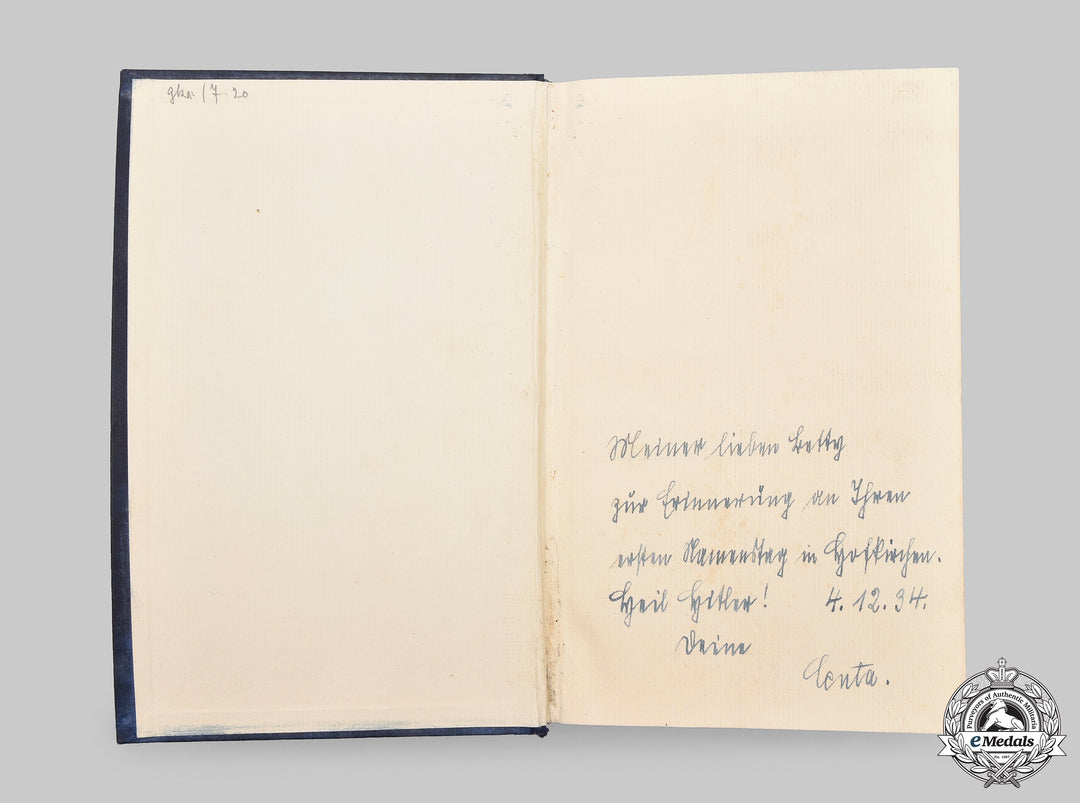 7. 20
Meiner lieben Betty
zur Erinnerung an Ihren
ersten Namenstag in Hofkirchen.
Heil Hitler! 4.12.34.
Deine
Purveyors of Authentic Militaria
eMedals